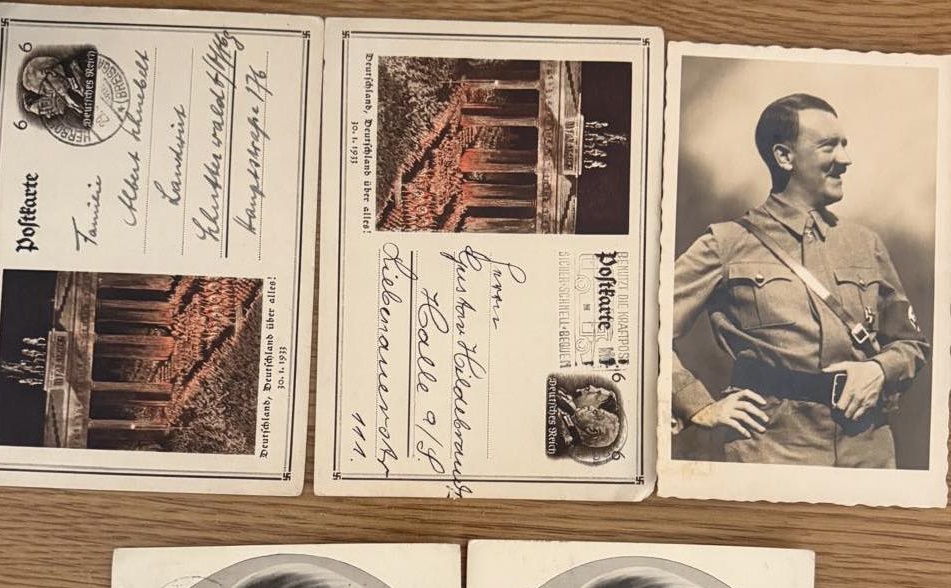 6
6
Deutsches Reich
Postkarte
Familie
Albert Schubelt
Landwirt
Hauptstraße 176
Deutschland, Deutschland über alles!
30. 1. 1933
Deutschland, Deutschland über alles!
30. 1. 1933
Postkarte
BENUTZT DIE KRAFTPOST
SICHER·SCHNELL·BEQUEM
6
6
Deutsches Reich
Herrn
Gustav Hildebrandt
Halle a/S.
Liebenauerstr
111.